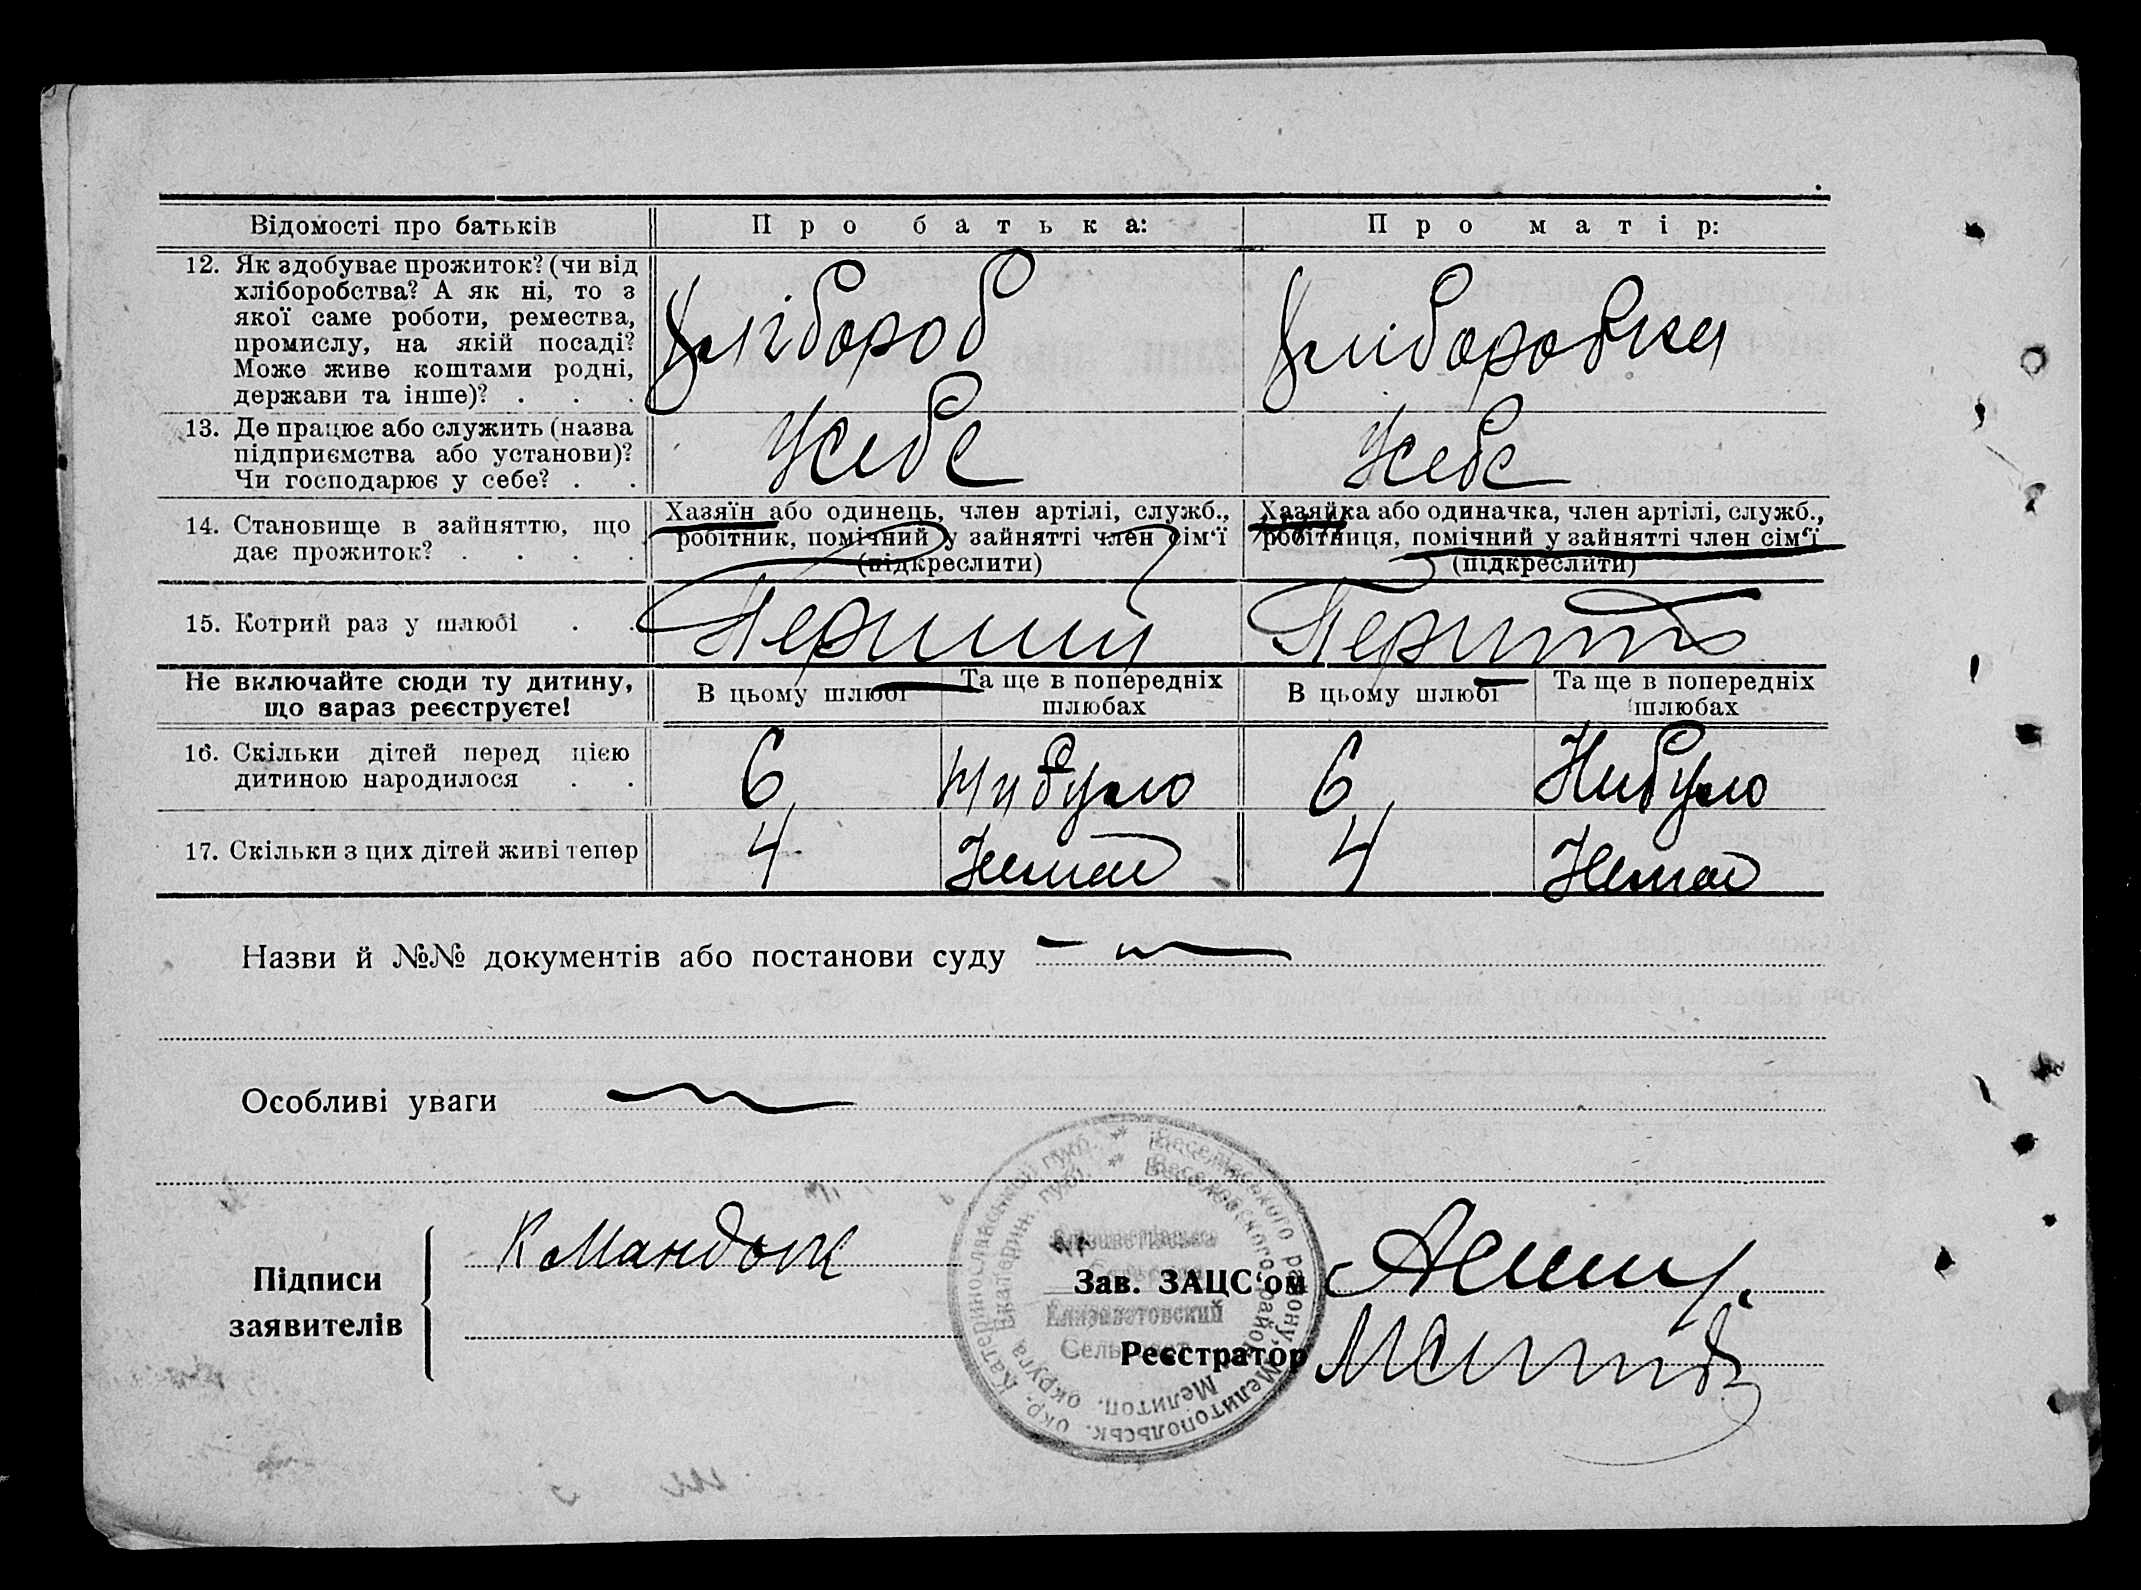 Відомості про батьків
Про батька:
Про матір:
12. Як здобуває прожиток? (чи від
хліборобства? А як ні, то з
якої саме роботи, ремества,
промислу, на якій посаді?
Може живе коштами родні,
держави та інше)? . . .
Хлібороб
Хліборобка
13. Де працює або служить (назва
підприємства або установи)?
Чи господарює у себе? . .
Усебе
Усебе
14. Становище в зайняттю, що
дає прожиток? . . . .
Хазяїн або одинець, член артілі, служб.,
робітник, помічний у зайнятті член сім‘ї
(підкреслити)
Хазяйка або одиначка, член артілі, служб.,
робітниця, помічний у зайнятті член сім‘ї
(підкреслити)
15. Котрий раз у шлюбі . .
Перший
Не включайте сюди ту дитину,
що зараз реєструєте!
В цьому шлюбі
Та ще в попередніх
шлюбах
В цьому шлюбі
Та ще в попередніх
шлюбах
16. Скільки дітей перед цією
дитиною народилося . .
6
Нибуло
6
Нибуло
17. Скільки з цих дітей живі тепер
4
Немає
4
Немає
Назви й №№ документів або постанови суду
Особливі уваги
Підписи
заявителів
Зав. ЗАЦС‘ом
Реєстратор
Катеринославської губ. ** Веселівського району, Мелитопольськ. окр.
Екатерин. губ. ** Веселовского район. Мелитоп. округа
Елизаветовский